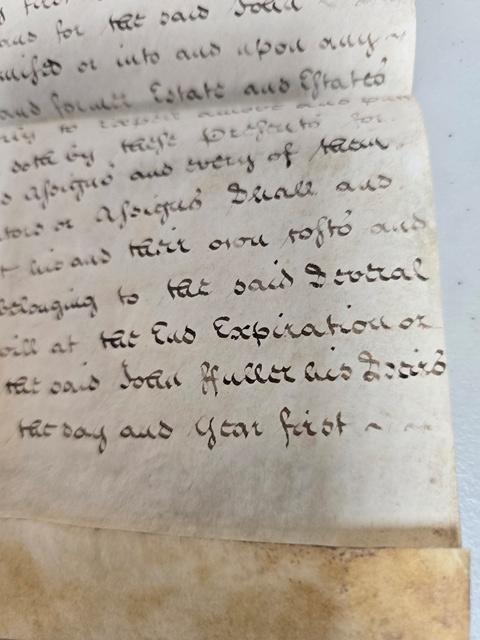 first
and for the said John
or into and upon any
and former Estate and Estates
to
doth by these Presents for
Assignes and every of them
or Assignes Shall and
his and their own Costs and
belonging to the said Several
will at the End Expiration or
the said John ffuller his Heirs
the day and Year first